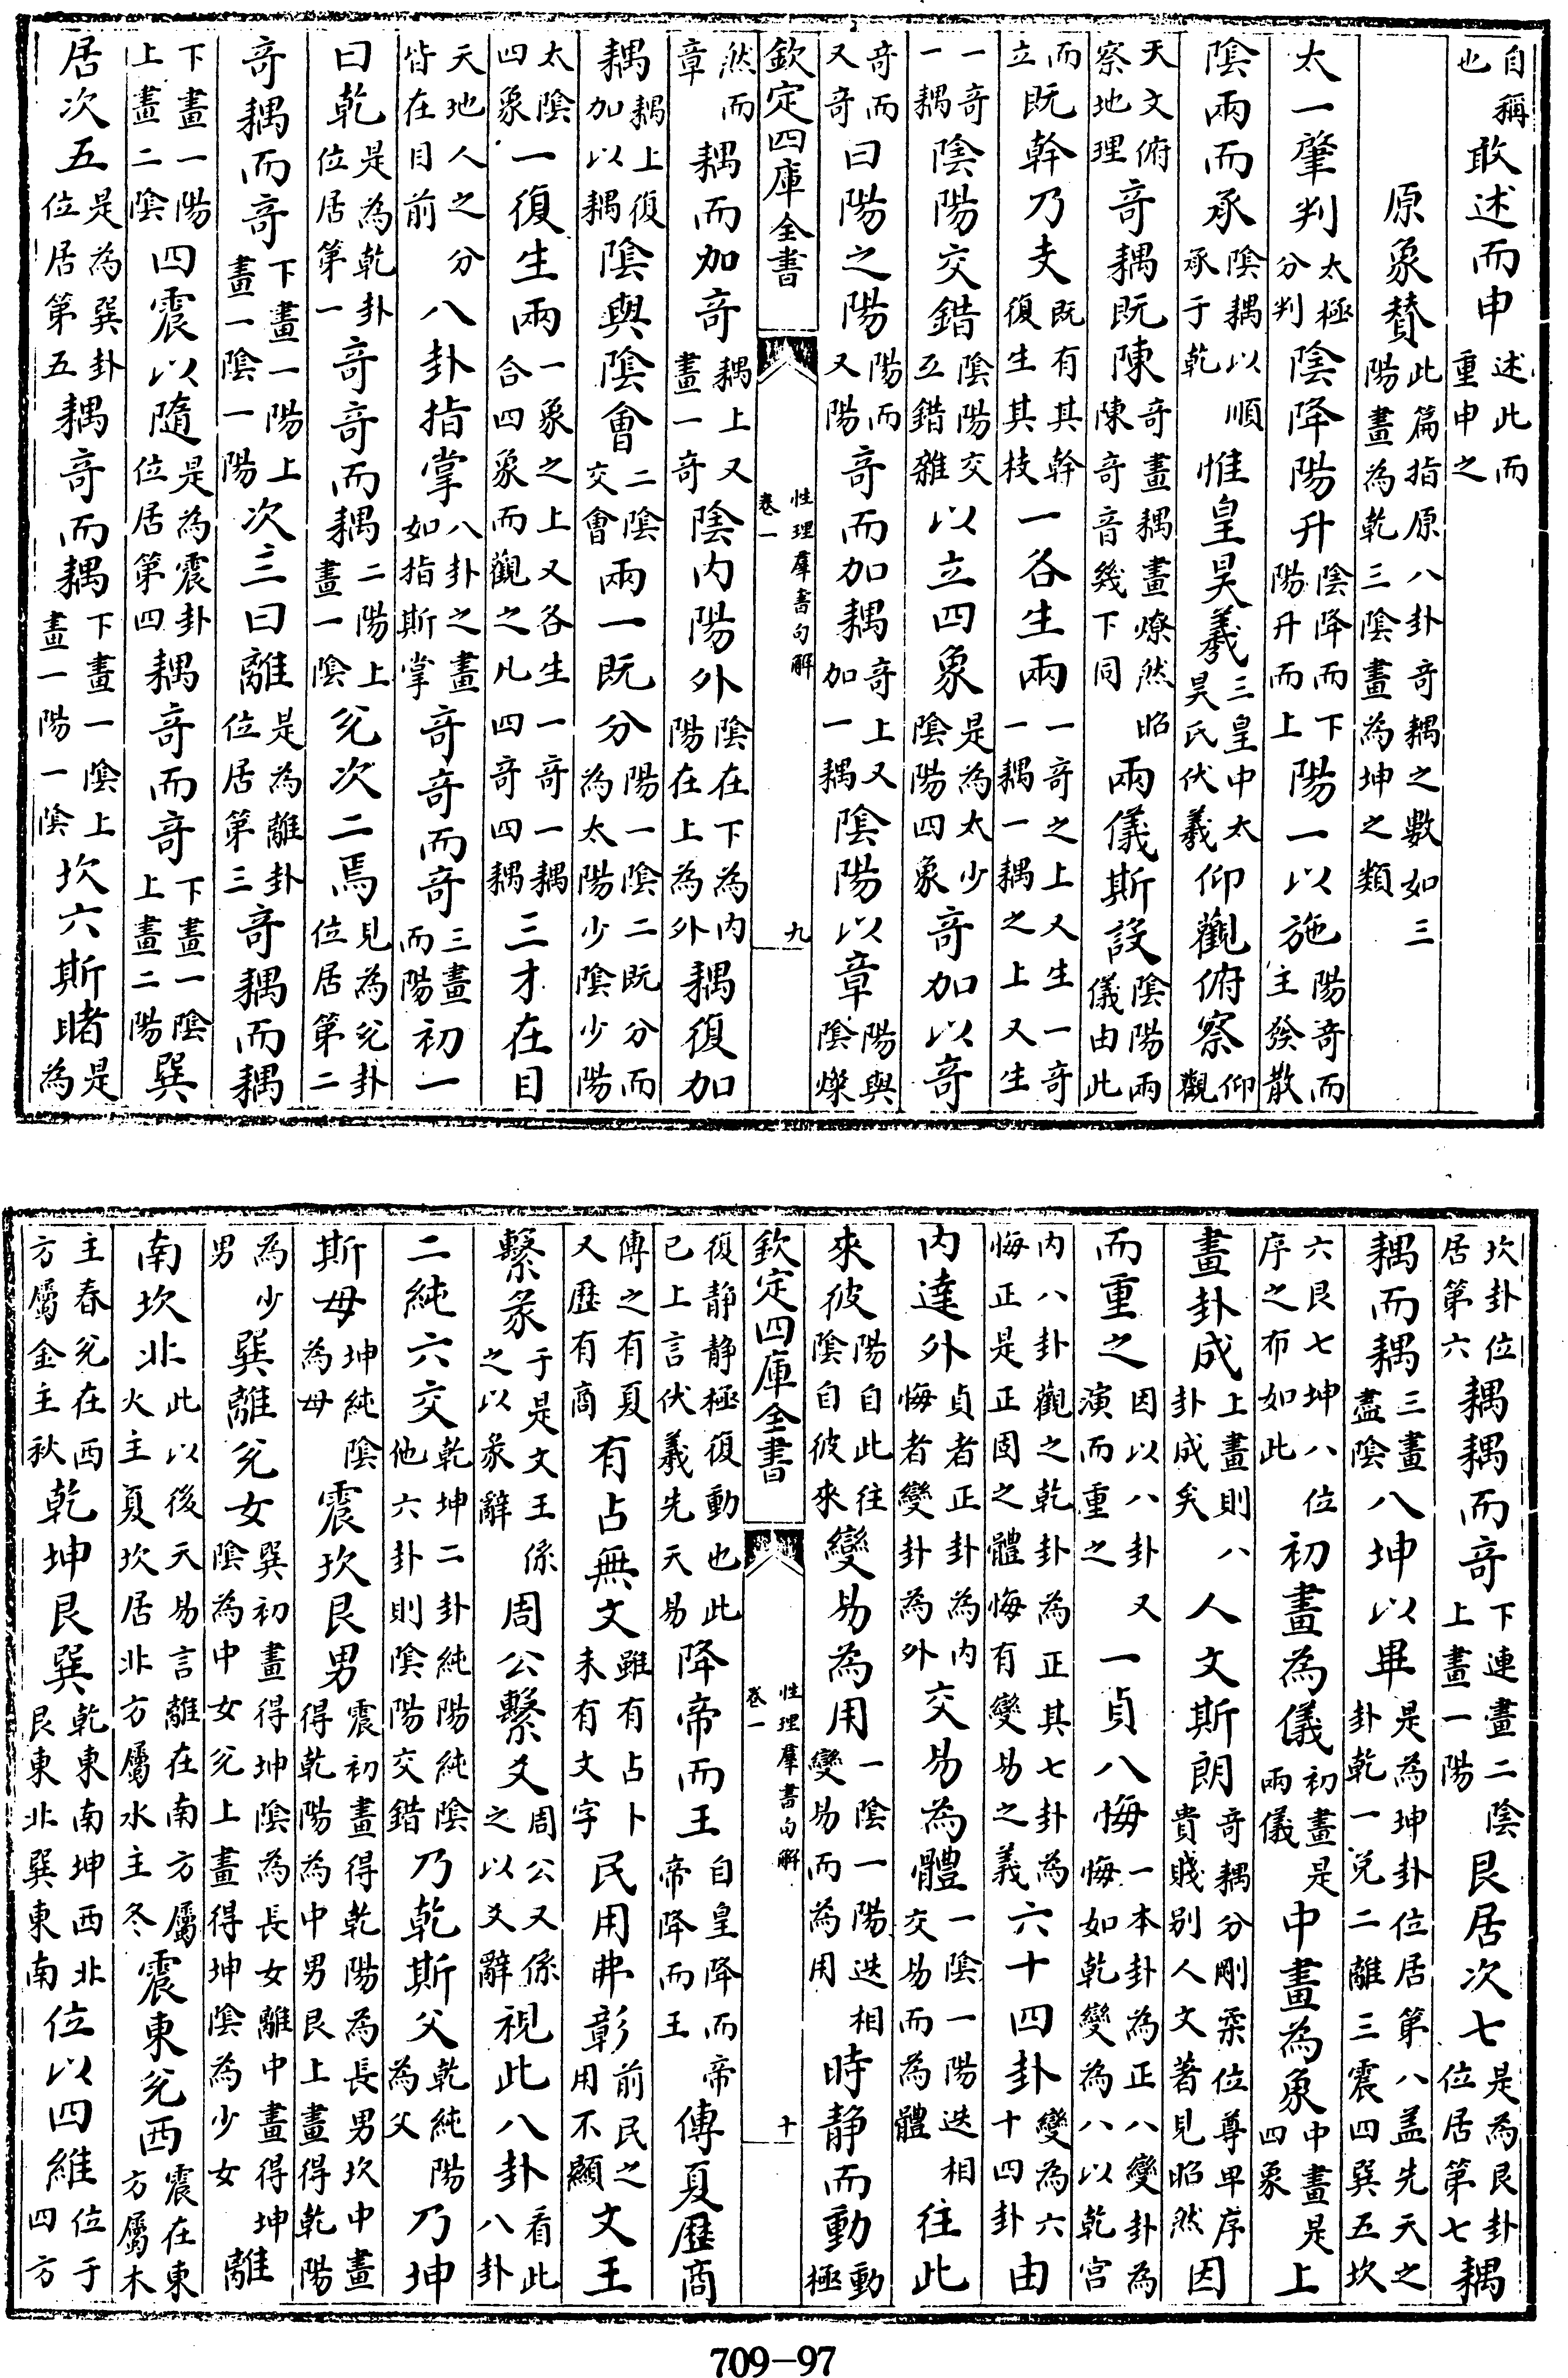 自稱也敢述而申述此而重申之
原象贊此篇指原八卦奇耦之數如三陽畫為乾三陰畫為坤之類
太一肇判太極分判陰降陽升陰降而下陽升而上陽一以施陽奇而主發散
陰兩而承陰耦以順承于乾惟皇昊羲三皇中太昊氏伏羲仰觀俯察仰觀
天文俯察地理奇耦既陳奇畫耦畫燎然昭陳奇音幾下同兩儀斯設陰陽兩儀由此
而立既幹乃支既有其幹復生其枝一各生兩一奇之上又生一奇一耦一耦之上又生
一奇一耦陰陽交錯陰陽交互錯雜以立四象是為太少陰陽四象奇加以奇
奇而又奇曰陽之陽陽而又陽奇而加耦奇上又加一耦陰陽以章陽與陰燦
欽定四庫全書 性理羣書句解 卷一 九
然而章耦而加奇耦上又畫一奇陰内陽外陰在下為内陽在上為外耦復加
耦耦上復加以耦陰與陰會二陰交會兩一既分陽一陰二既分而為太陽少陰少陽
太陰四象一復生兩一象之上又各生一奇一耦合四象而觀之凡四奇四耦三才在目
天地人之分皆在目前八卦指掌八卦之畫如指斯掌奇奇而奇三畫而陽初一
曰乾是為乾卦位居第一奇奇而耦二陽上畫一陰兊次二焉見為兊卦位居第二
奇耦而奇下畫一陽上畫一陰一陽次三曰離是為離卦位居第三奇耦而耦
下畫一陽上畫二陰四震以隨是為震卦位居第四耦奇而奇下畫一陰上畫二陽巽
居次五是為巽卦位居第五耦奇而耦下畫一陰上畫一陽一陰坎六斯睹是為
坎卦位居第六耦耦而奇下連畫二陰上畫一陽艮居次七是為艮卦位居第七耦
耦而耦三畫盡陰八坤以畢是為坤卦位居第八盖先天之卦乾一兊二離三震四巽五坎
六艮七坤八位序之布如此初畫為儀初畫是兩儀中畫為象中畫是四象上
畫卦成上畫則八卦成矣人文斯朗奇耦分剛柔位尊卑序貴賤别人文著見昭然因
而重之因以八卦又演而重之一貞八悔一本卦為正八變卦為悔如乾變為八以乾宫
内八卦觀之乾卦為正其七卦為悔正是正固之體悔有變易之義六十四卦變為六十四卦由
内達外貞者正卦為内悔者變卦為外交易為體一陰一陽迭相交易而為體往此
來彼陽自此往陰自彼來變易為用一陰一陽迭相變易而為用時静而動動極
欽定四庫全書 性理羣書句解 卷一 十
復静静極復動也此已上言伏羲先天易降帝而王自皇降而帝帝降而王傳夏歷商
傳之有夏又歷有商有占無文雖有占卜未有文字民用弗彰前民之用不顯文王
繫彖于是文王係之以彖辭周公繫爻周公又係之以爻辭視此八卦看此八卦
二純六交乾坤二卦純陽純陰他六卦則陰陽交錯乃乾斯父乾純陽為父乃坤
斯母坤純陰為母震坎艮男震初畫得乾陽為長男坎中畫得乾陽為中男艮上畫得乾陽
為少男巽離兊女巽初畫得坤陰為長女離中畫得坤陰為中女兊上畫得坤陰為少女離
南坎北此以後天易言離在南方屬火主夏坎居北方屬水主冬震東兊西震在東方屬木
主春兊在西方屬金主秋乾坤艮巽乾東南坤西北艮東北巽東南位以四維位于四方
709-97